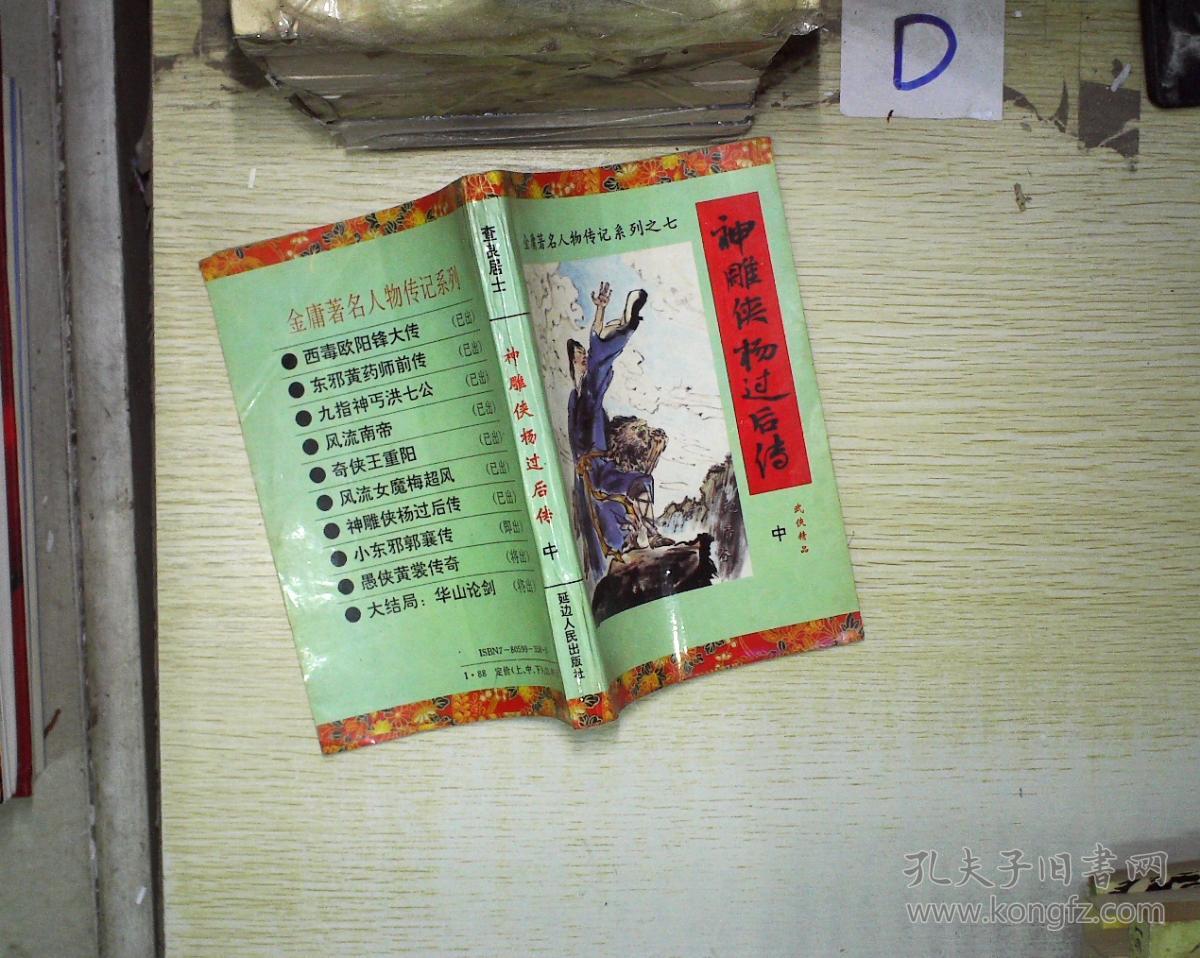 D
金庸著名人物传记系列
西毒欧阳锋大传 (已出)
东邪黄药师前传 (已出)
九指神丐洪七公 (已出)
风流南帝 (已出)
奇侠王重阳 (已出)
风流女魔梅超风 (已出)
神雕侠杨过后传 (已出)
小东邪郭襄传 (即出)
愚侠黄裳传奇 (将出)
大结局：华山论剑 (将出)
ISBN7-80599-
I·88 定价(上、中、下)
居士
神雕侠杨过后传
中
延边人民出版社
金庸著名人物传记系列之七
神雕侠杨过后传
武侠精品
中
孔夫子旧书网
www.kongfz.com